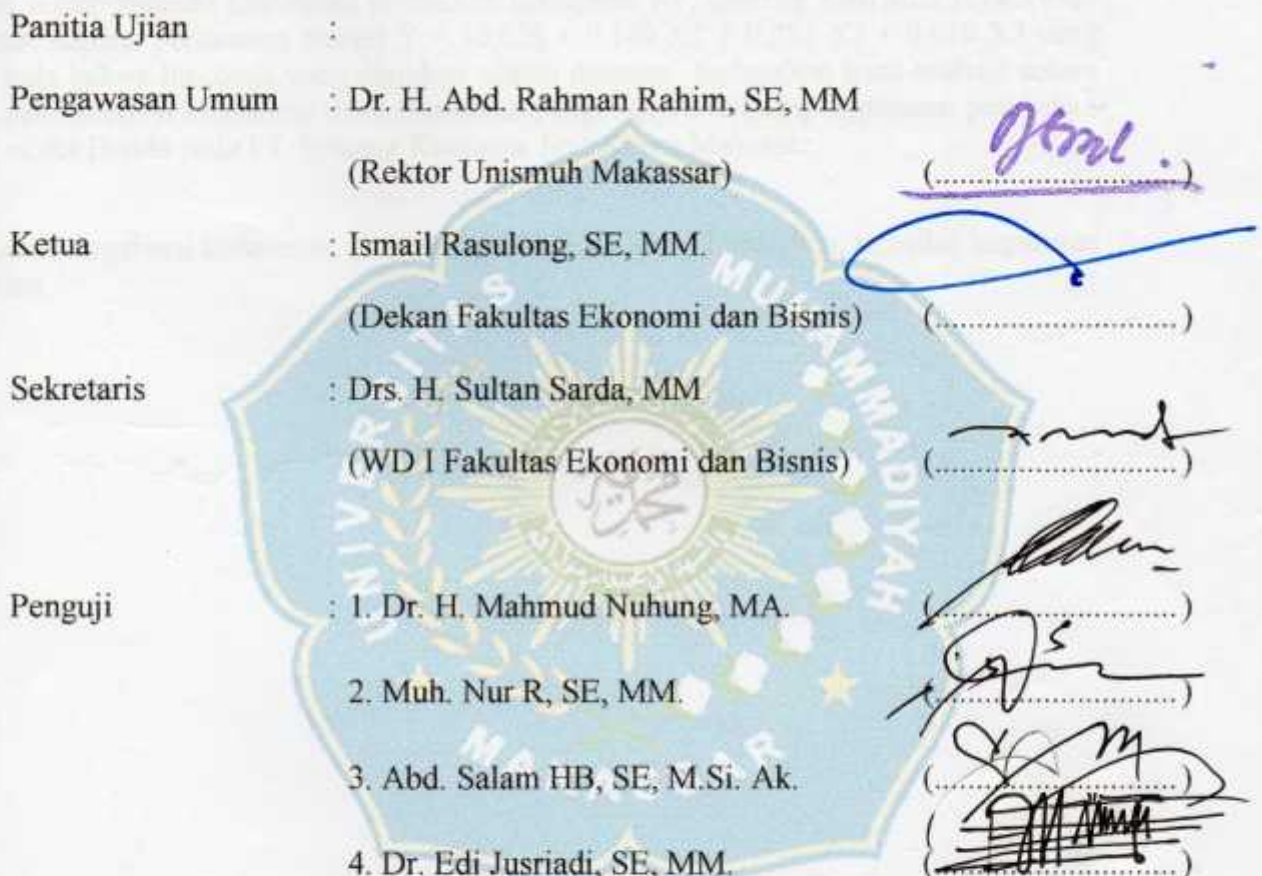 Panitia Ujian :
Pengawasan Umum : Dr. H. Abd. Rahman Rahim, SE, MM
(Rektor Unismuh Makassar) (..............................)
Ketua : Ismail Rasulong, SE, MM.
(Dekan Fakultas Ekonomi dan Bisnis) (..............................)
Sekretaris : Drs. H. Sultan Sarda, MM
(WD I Fakultas Ekonomi dan Bisnis) (..............................)
Penguji : 1. Dr. H. Mahmud Nuhung, MA. (..............................)
2. Muh. Nur R, SE, MM. (..............................)
3. Abd. Salam HB, SE, M.Si. Ak. (..............................)
4. Dr. Edi Jusriadi, SE, MM. (..............................)
UNIVERSITAS MUHAMMADIYAH
MAKASSAR